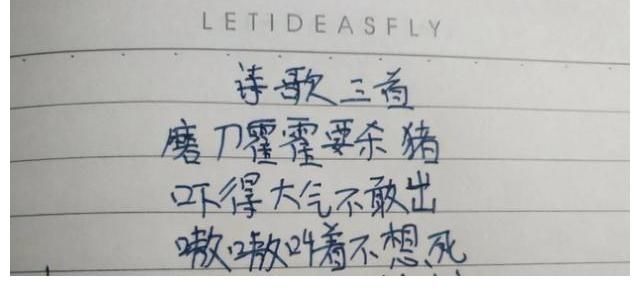 LETIDEASFLY
诗歌三首
磨刀霍霍要杀猪
吓得大气不敢出
嗷嗷叫着不想死